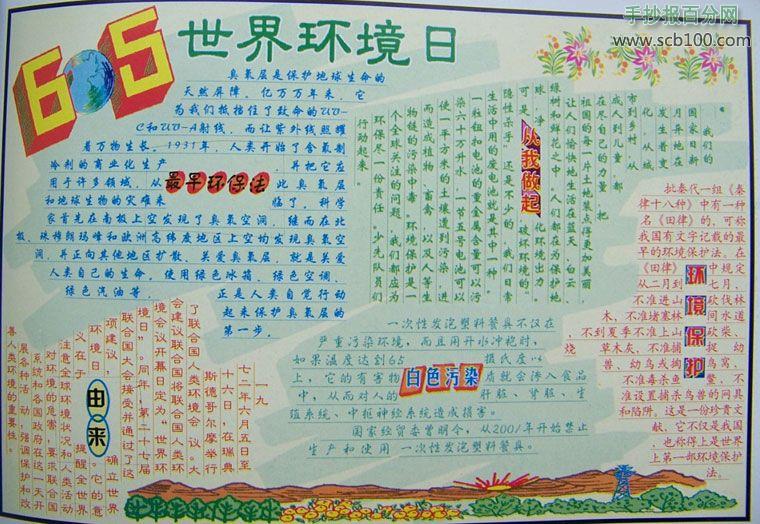 手抄报百分网
www.scb100.com
6 5
世界环境日
臭氧层是保护地球生命的
天然屏障。亿万万年来,它
为我们抵挡住了致命的UV-
C和UV-A射线,而让紫外线照耀
着万物生长。1931年,人类开始了含氯制
冷剂的商业化生产 并把它应
用于许多领域,从 此臭氧层
和地球生物的灾难来 临了。科学
家首先在南极上空发现了臭氧空洞,继而在北
极、珠穆朗玛峰和欧洲高纬度地区上空均发现臭氧空
洞,并正向其他地区扩散。关爱臭氧层,就是关爱
人类自己的生命。使用绿色冰箱、绿色空调、
绿色汽油等, 正是人类自觉行动
起来保护臭氧层的
第一步。
最早环保法
我们的
国家日新
月异地在
发生着变
化,从城
市到乡村,从
成人到儿童,都
在尽自己的力量,把
祖国的每一片土地装点得更加美丽,
让人们愉快地生活在蓝天、白云、
绿树和鲜花之中。我们都在为保护地
球、净 化环境出力。
可是, 破坏环境的"
隐性杀手"还是不少的,我们日常
生活中用的废电池就是其中一种,
一粒钮扣电池的重金属含量可以污
染六十万升水,一节五号电池可以
使一平方米的土壤遭到污染,进
而造成植物、畜禽、以及人等生
物链的污染中毒。环境保护是一
个全球关注的问题,我们都应为
环保尽一份责任。少先队员们,
行动起来。
从我做起
批秦代一组《秦
律十八种》中有一种
名《田律》的,可称
我国有文字记载的最
早的环境保护法。在
《田律》 中规定
从二月到 七月,
不准进山 砍伐林
木,不准堵塞林 间水道
,不到夏季不准上山 砍柴、
烧草木灰,不准捕 捉幼
兽、幼鸟或掏 鸟窝,
不准毒杀鱼 鳖,不
准设置捕杀鸟兽的网具
和陷阱,这是一份珍贵文
献,它不仅是我国
,也称得上是世界
上第一部环境保护
法。
环境保护
一次性发泡塑料餐具不仅在
严重污染环境,而且用开水冲袍时,
如果温度达到65 摄氏度以
上,它的有害物 质就会渗入食品
中,从而对人的 肝脏、肾脏、生
殖系统、中抠神经系统造成损害。
国家经贸委曾明令,从2001年开始禁止
生产和使用一次性发泡塑料餐具。
白色污染
一九
七二年六月五日至
十六日,在瑞典
斯德哥尔摩举行
了联合国人类环境会议。大
会建议联合国将联合国人类环
境会议开幕日定为"世界环
境日"。同年,第二十七届
联合国大会接受并通过了这
项建议, 确立世界
环境日, 的意
义在于 提醒全世界
注意全球环境状况和人类活动
对环境的危害,要求联合国
系统和各国政府在这一天开
展各种活动,强调保护和改
善人类环境的重要性。
由来